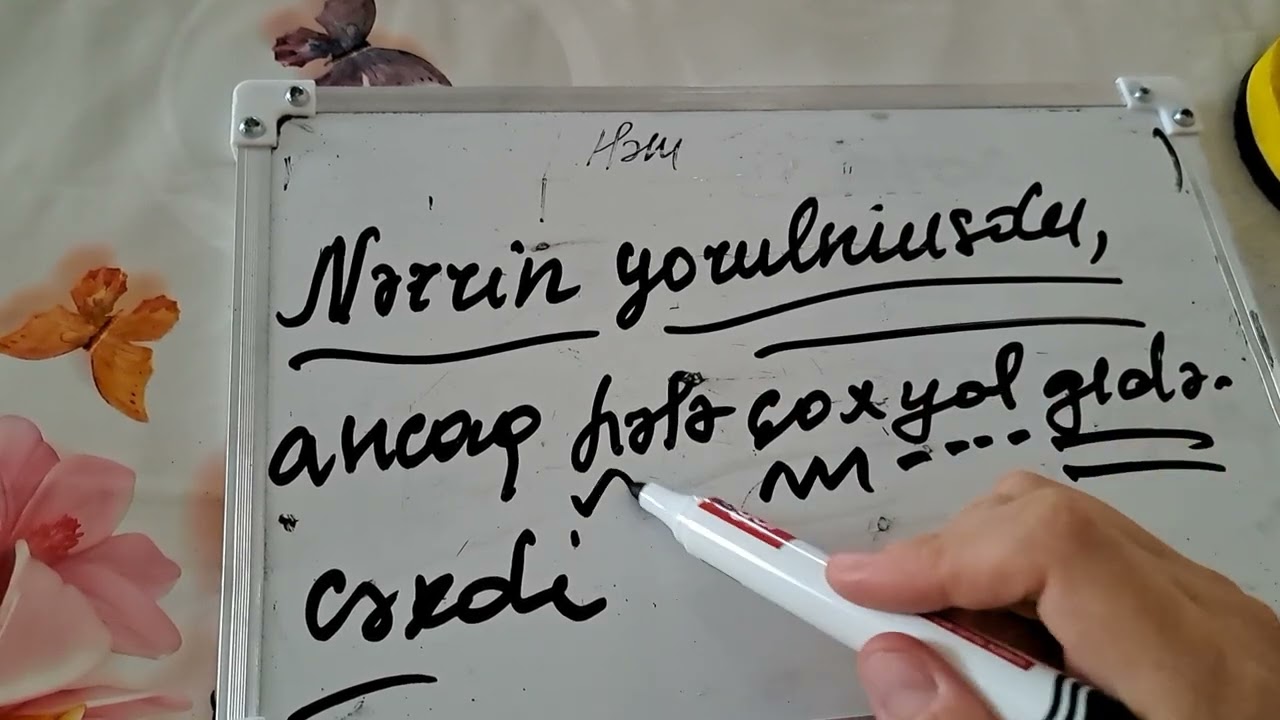 Nəsrin yorulmuşdu,
ancaq hələ çox yol gedə-
cəkdi